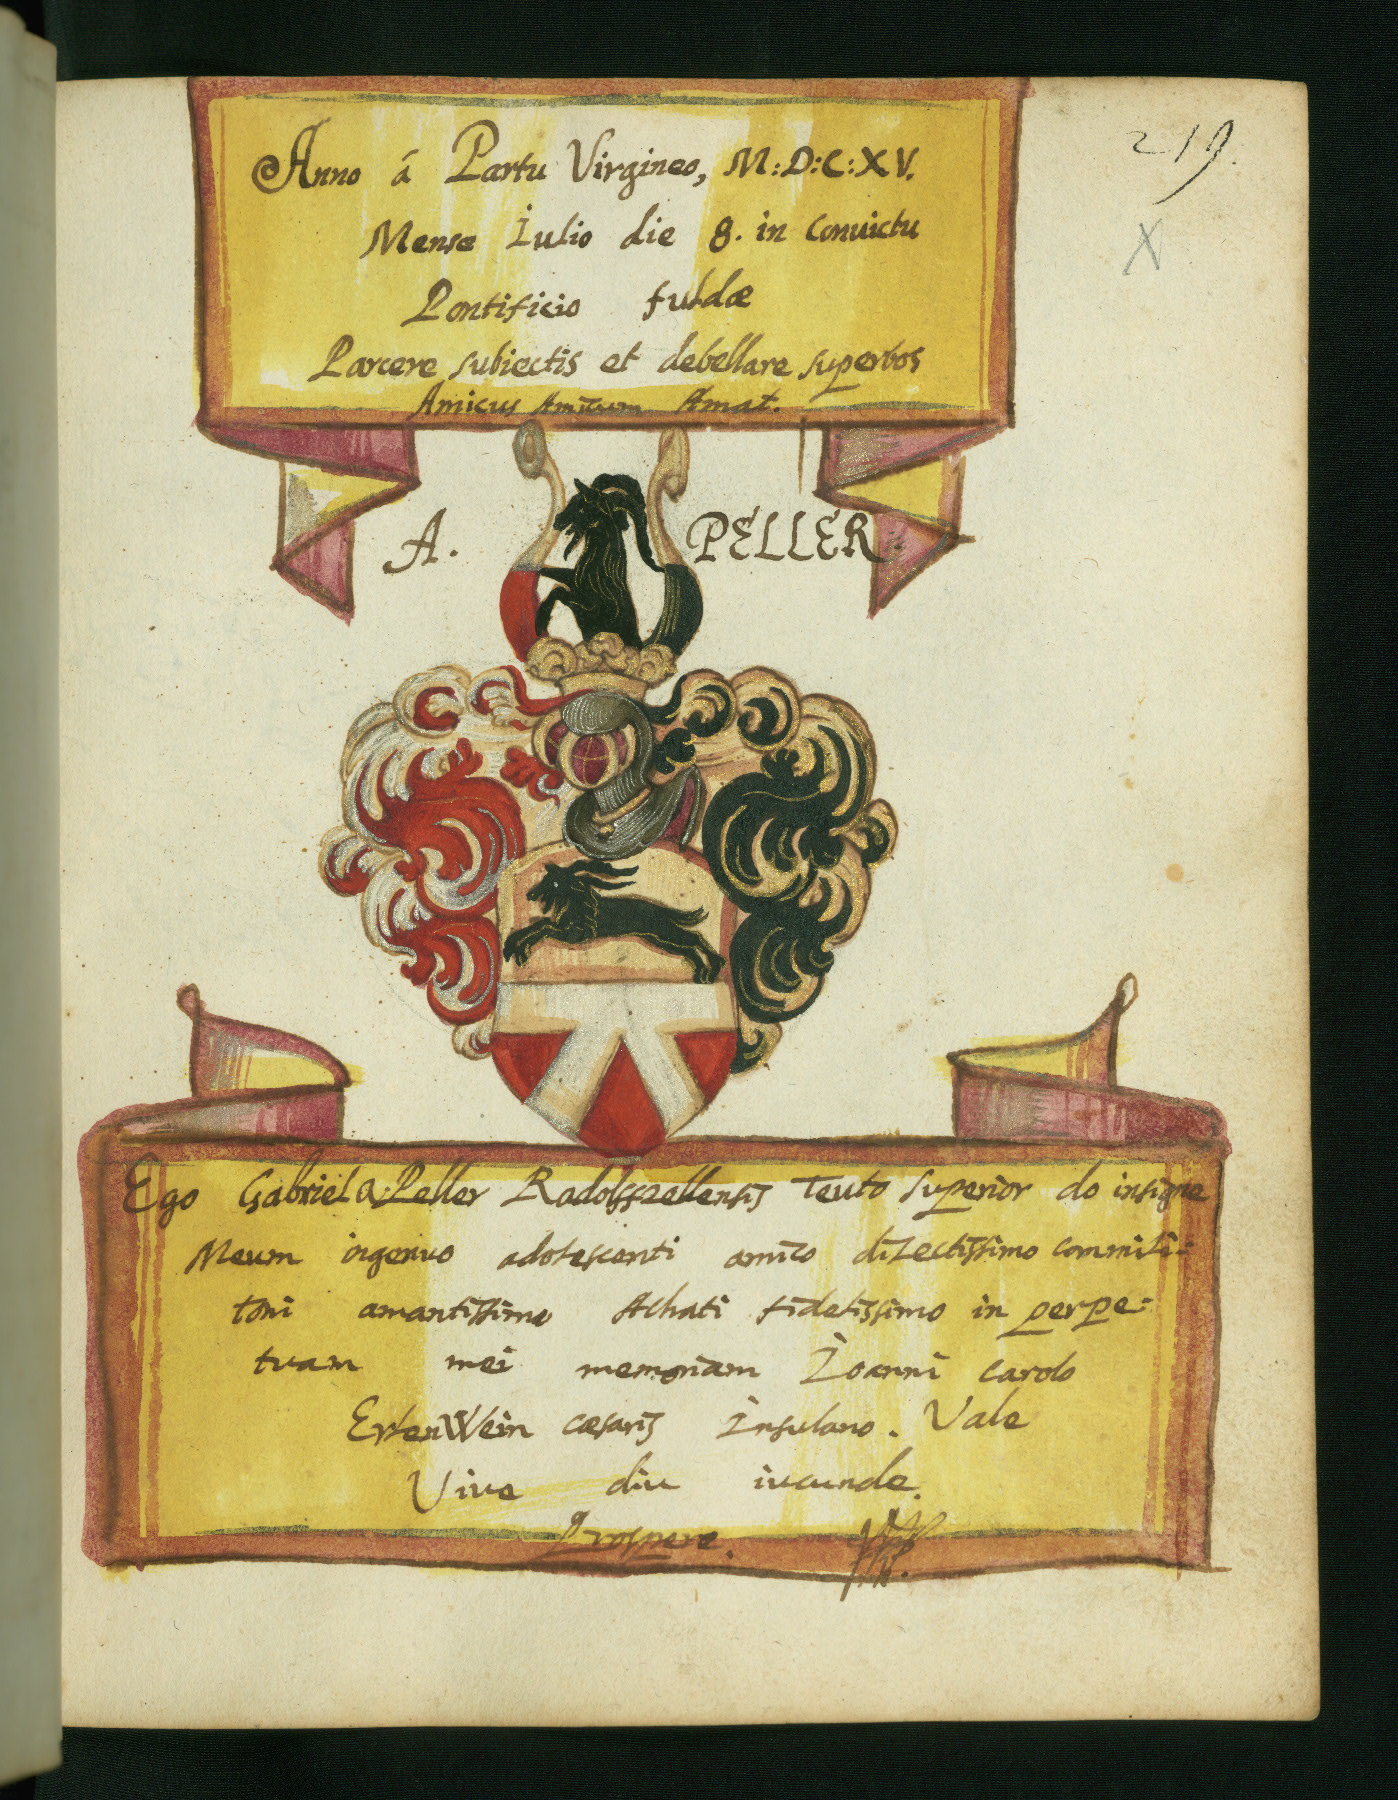 219.
X
Anno á Partu Virgineo, M:D:C:XV.
Mense Iulio die 8. in Convictu
Pontificio fuldæ
Parcere subiectis et debellare superbos
Amicus Amicum Amat.
A. PELLER.
Ego Gabriel a Peller Radolfszellensis Teuto superior do insigne
Meum ingenuo adolescenti amico dilectissimo commili:
toni amantissimo Achati fidelissimo in perpe:
tuam mei memoriam Ioanni carolo
ErtenWein cæsaris Insulano. Vale
Vive diu iucunde.
Prospere.